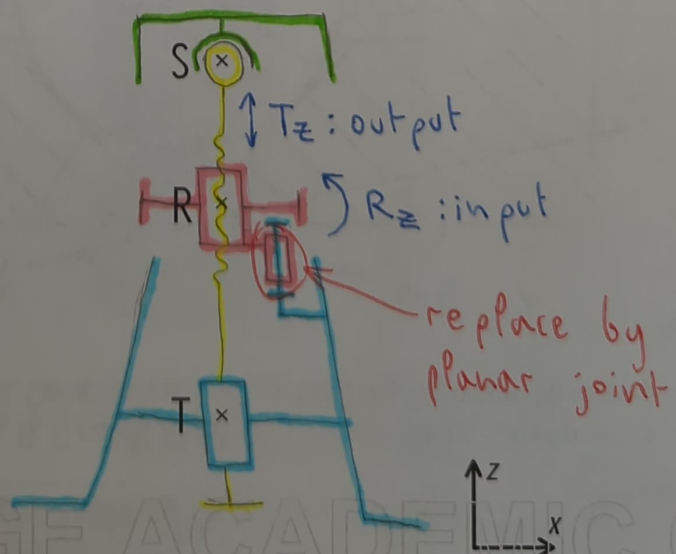 S
Tz : output
R
Rz : input
replace by
planar joint
T
z
x
GE ACADEMIC